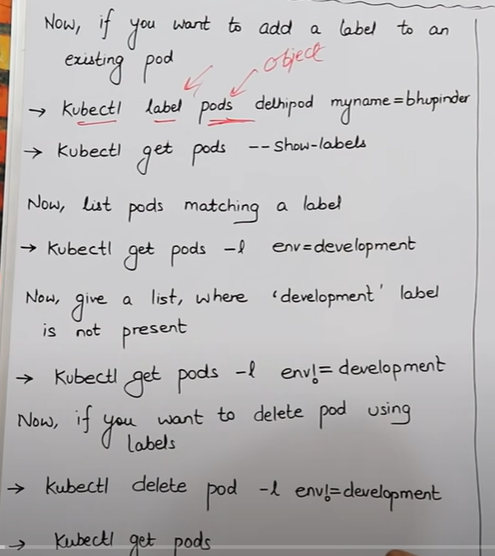 Now, if you want to add a label to an
existing pod
object
→ Kubectl label pods delhipod myname=bhupinder
→ Kubectl get pods --show-labels
Now, list pods matching a label
→ Kubectl get pods -l env=development
Now, give a list, where 'development' label
is not present
→ Kubectl get pods -l env!= development
Now, if you want to delete pod using
labels
→ Kubectl delete pod -l env!=development
→ Kubectl get pods